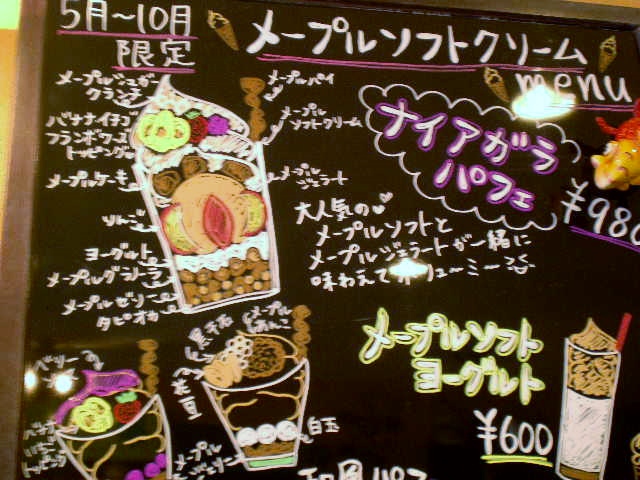 5月〜10月
限定
メープルソフトクリーム
menu
メープルシュガー
クランチ
メープルパイ
メープル
ソフトクリーム
バナナイチゴ
フランボワーズ
トッピング
メープルケーキ
メープル
ジェラート
りんご
ヨーグルト
メープルグラノーラ
メープルゼリー
タピオカ
ナイアガラ
パフェ
¥980
大人気の
メープルソフトと
メープルジェラートが一緒に
味わえて
メープルソフト
ヨーグルト
¥600
ベリー
バナナ
いちご
トッピング
黒千石
メープル
あんこ
花豆
白玉
メープル
ゼリー
和風パフ